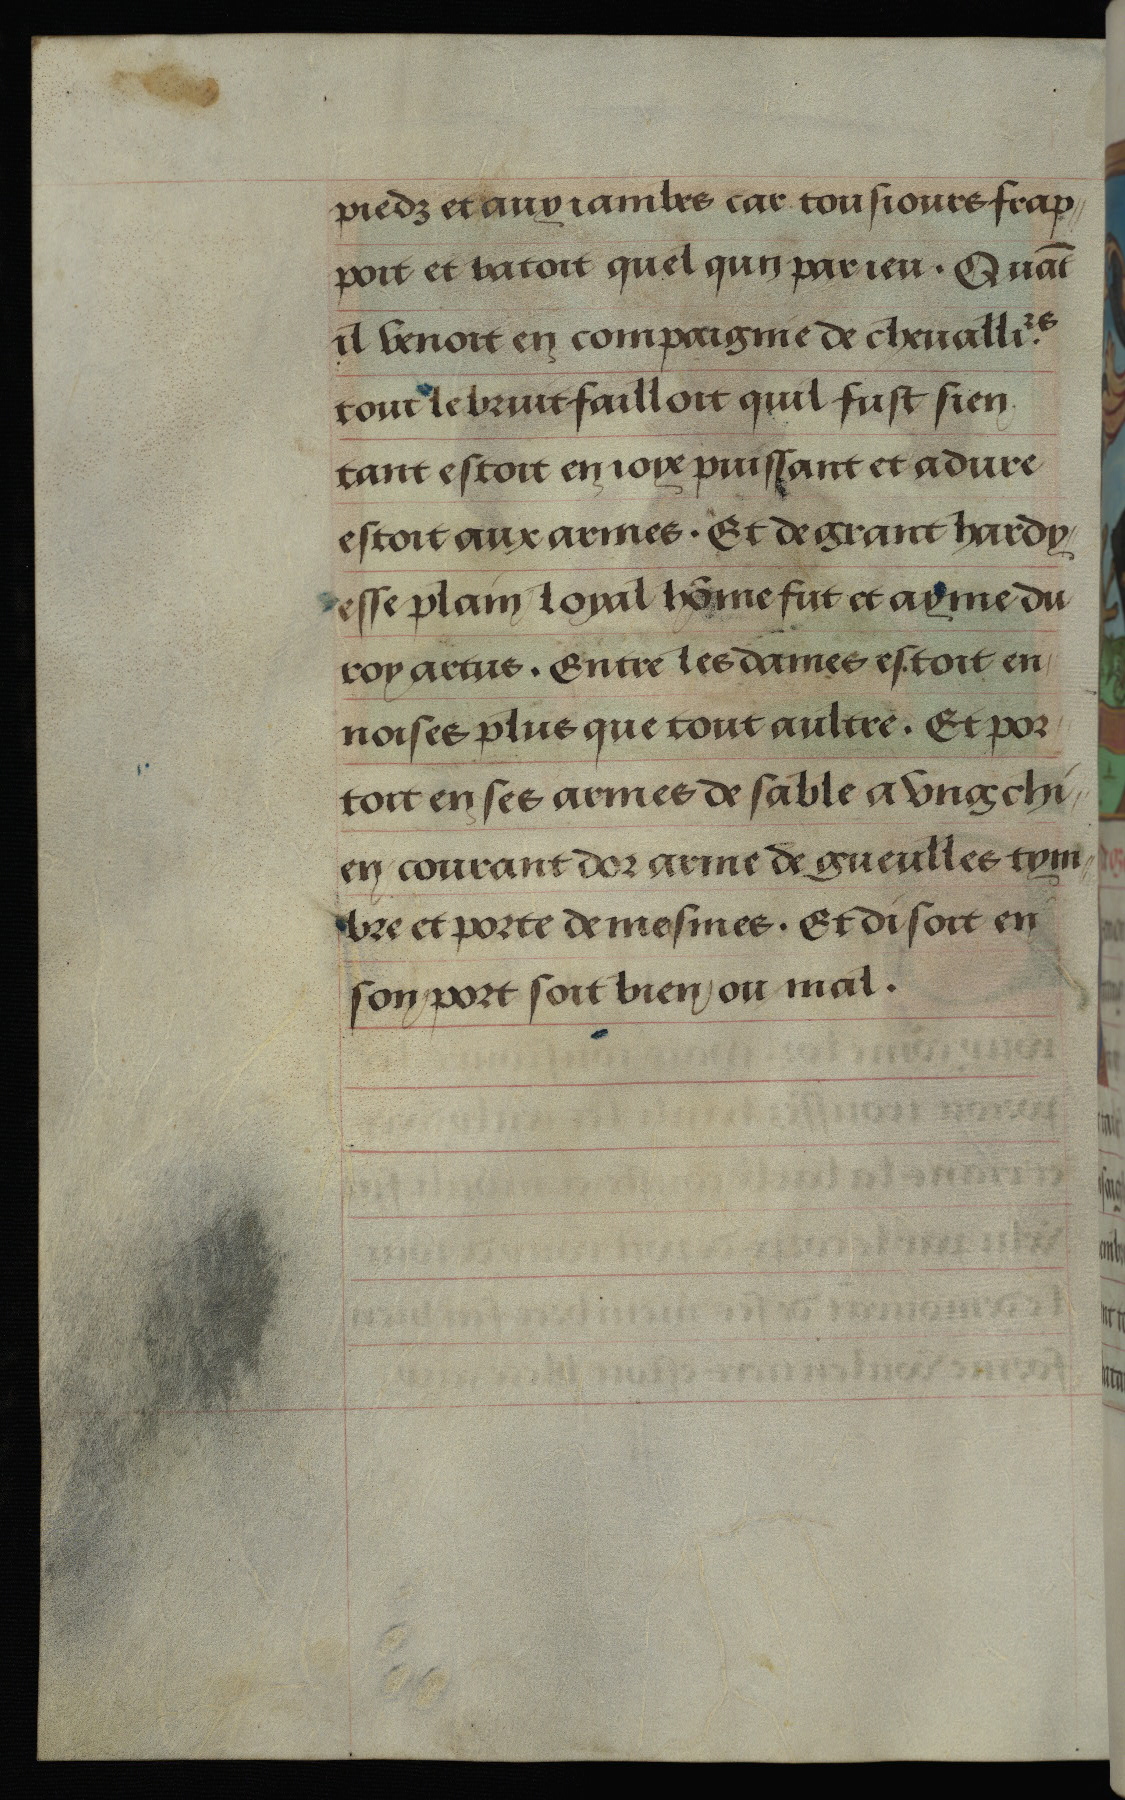 piedz et auy iambes car tousiours frap//
poit et batoit quel qun par ieu. Quāt
il venoit en compaignie de cheualliʳˢ.
tout le bruit failloit quil fust sien
tant estoit en ioye puissant et adure
estoit aux armes. Et de grant hardy/
esse plain loyal hōme fut et ayme du
roy artus. Entre les dames estoit en/
noises plus que tout aultre. Et por/
toit en ses armes de sable a vng chi//
en courant dor arme de gueulles tym//
bre et porte de mesmes. Et disoit en
son port soit bien ou mal.